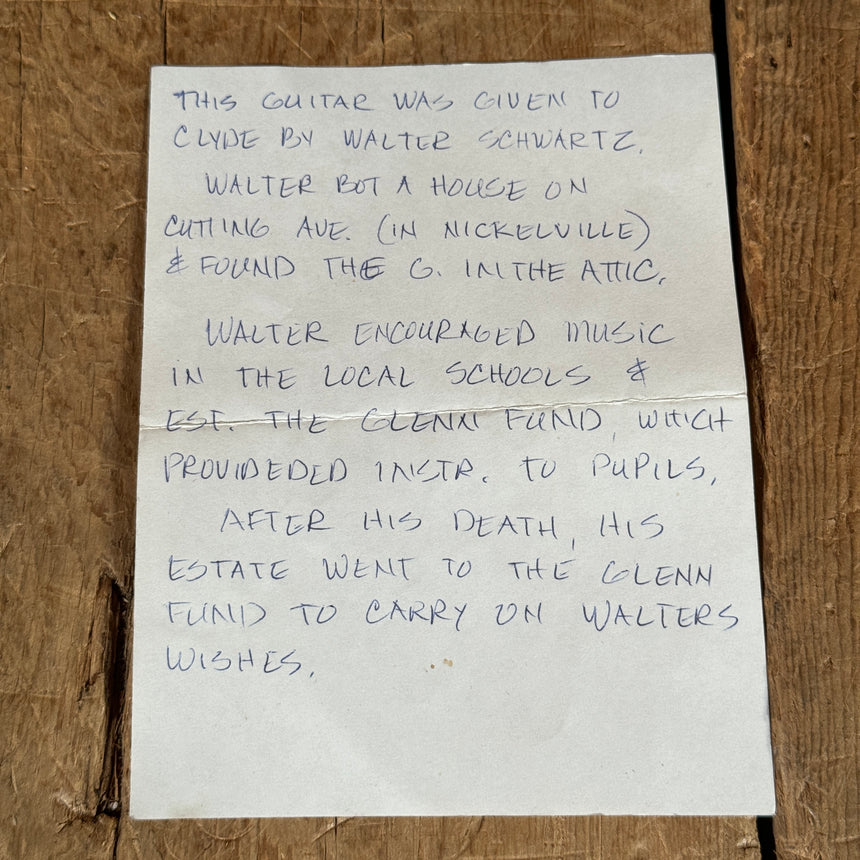 THIS GUITAR WAS GIVEN TO
CLYDE BY WALTER SCHWARTZ.
WALTER BOT A HOUSE ON
CUTTING AVE. (IN NICKELVILLE)
& FOUND THE G. IN THE ATTIC.
WALTER ENCOURAGED MUSIC
IN THE LOCAL SCHOOLS &
EST. THE GLENN FUND, WHICH
PROVIDEDED INSTR. TO PUPILS.
AFTER HIS DEATH, HIS
ESTATE WENT TO THE GLENN
FUND TO CARRY ON WALTERS
WISHES.